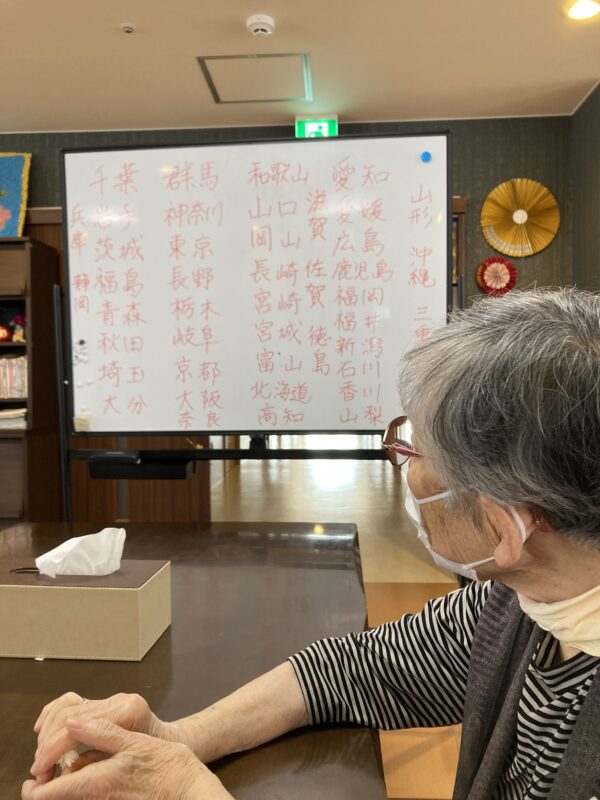 兵庫
静岡
千葉
岩手
茨城
福島
青森
秋田
埼玉
大分
群馬
神奈川
東京
長野
栃木
岐阜
京都
大阪
奈良
和歌山
山口
岡山
長崎
宮崎
宮城
富山
北海道
高知
滋賀
佐賀
徳島
愛知
愛媛
広島
鹿児島
福岡
福井
新潟
石川
香川
山梨
山形
沖縄
三重